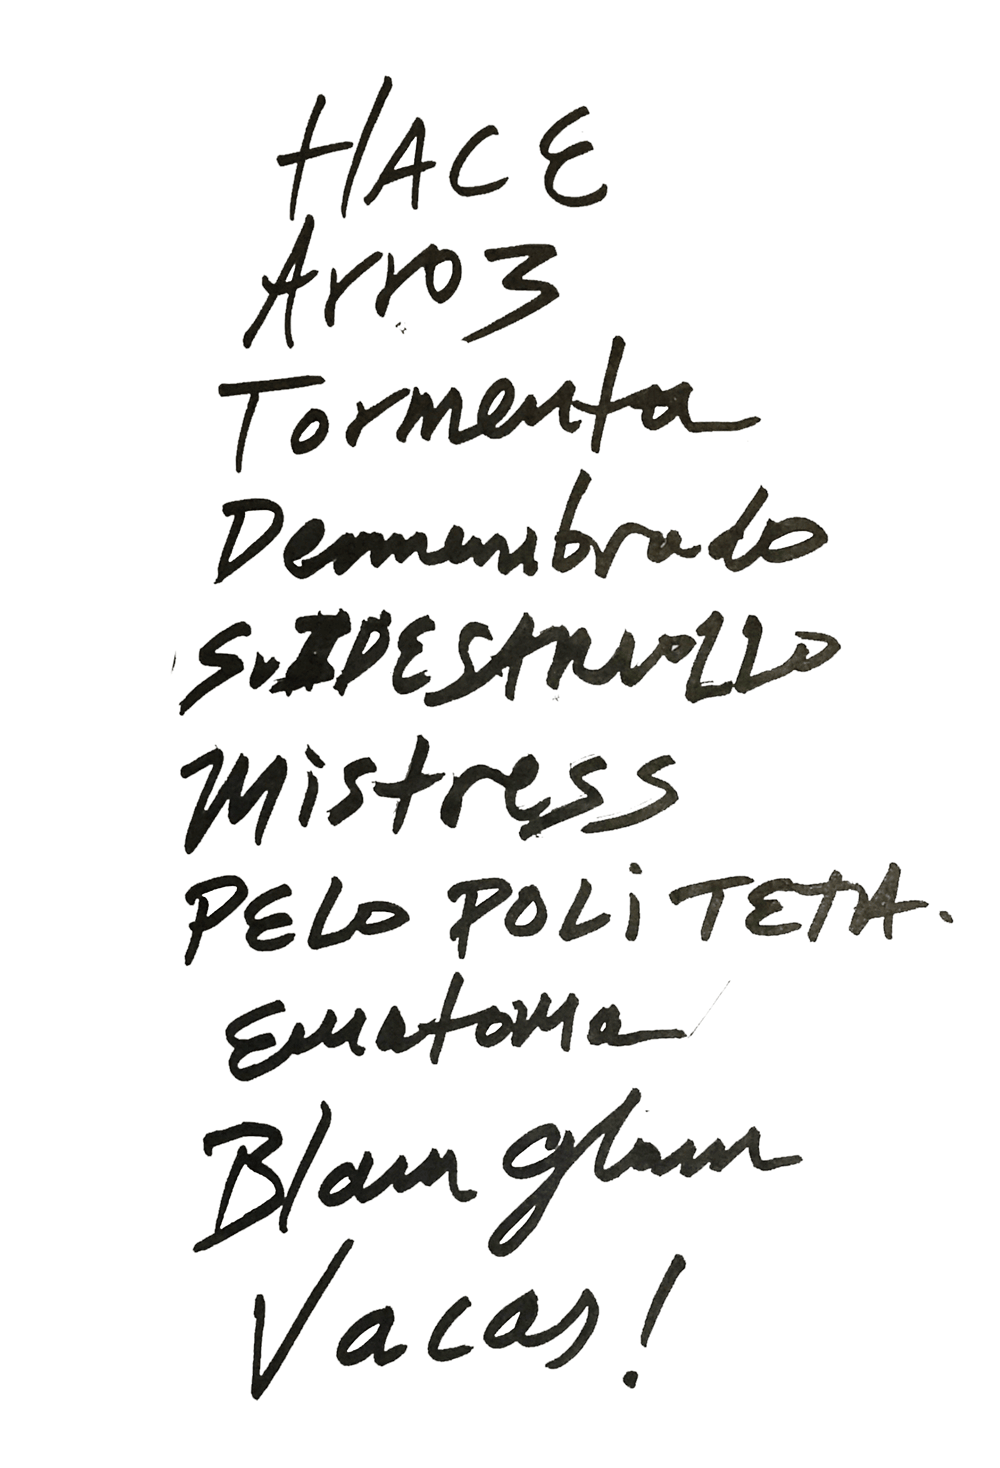 HACE
Arroz
Tormenta
Desmembrado
SUBDESARROLLO
Mistress
PELO POLITETA.
Ematoma
Blam glam
Vacas!